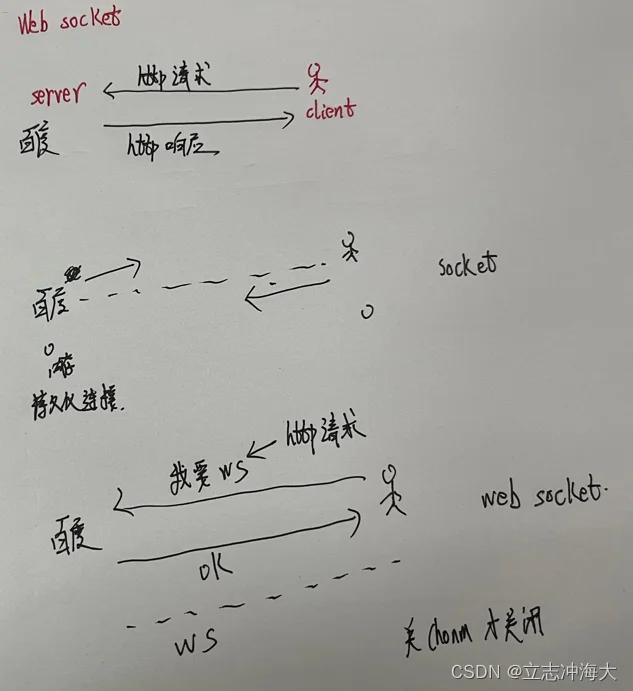 Web socket
http请求
server
client
百度
http响应
百度
socket
内存
持久化连接.
http请求
我要WS
web socket.
百度
OK
WS
关Chonm才关闭
CSDN @立志冲海大